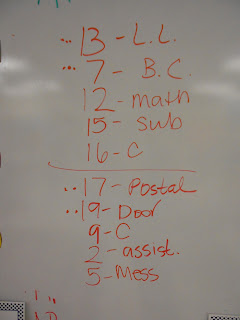 ... 13 - L.L.
... 7 - B.C.
12 - math
15 - sub
16 - C
.. 17 - Postal
.. 19 - Door
9 - C
2 - assist.
5 - Mess